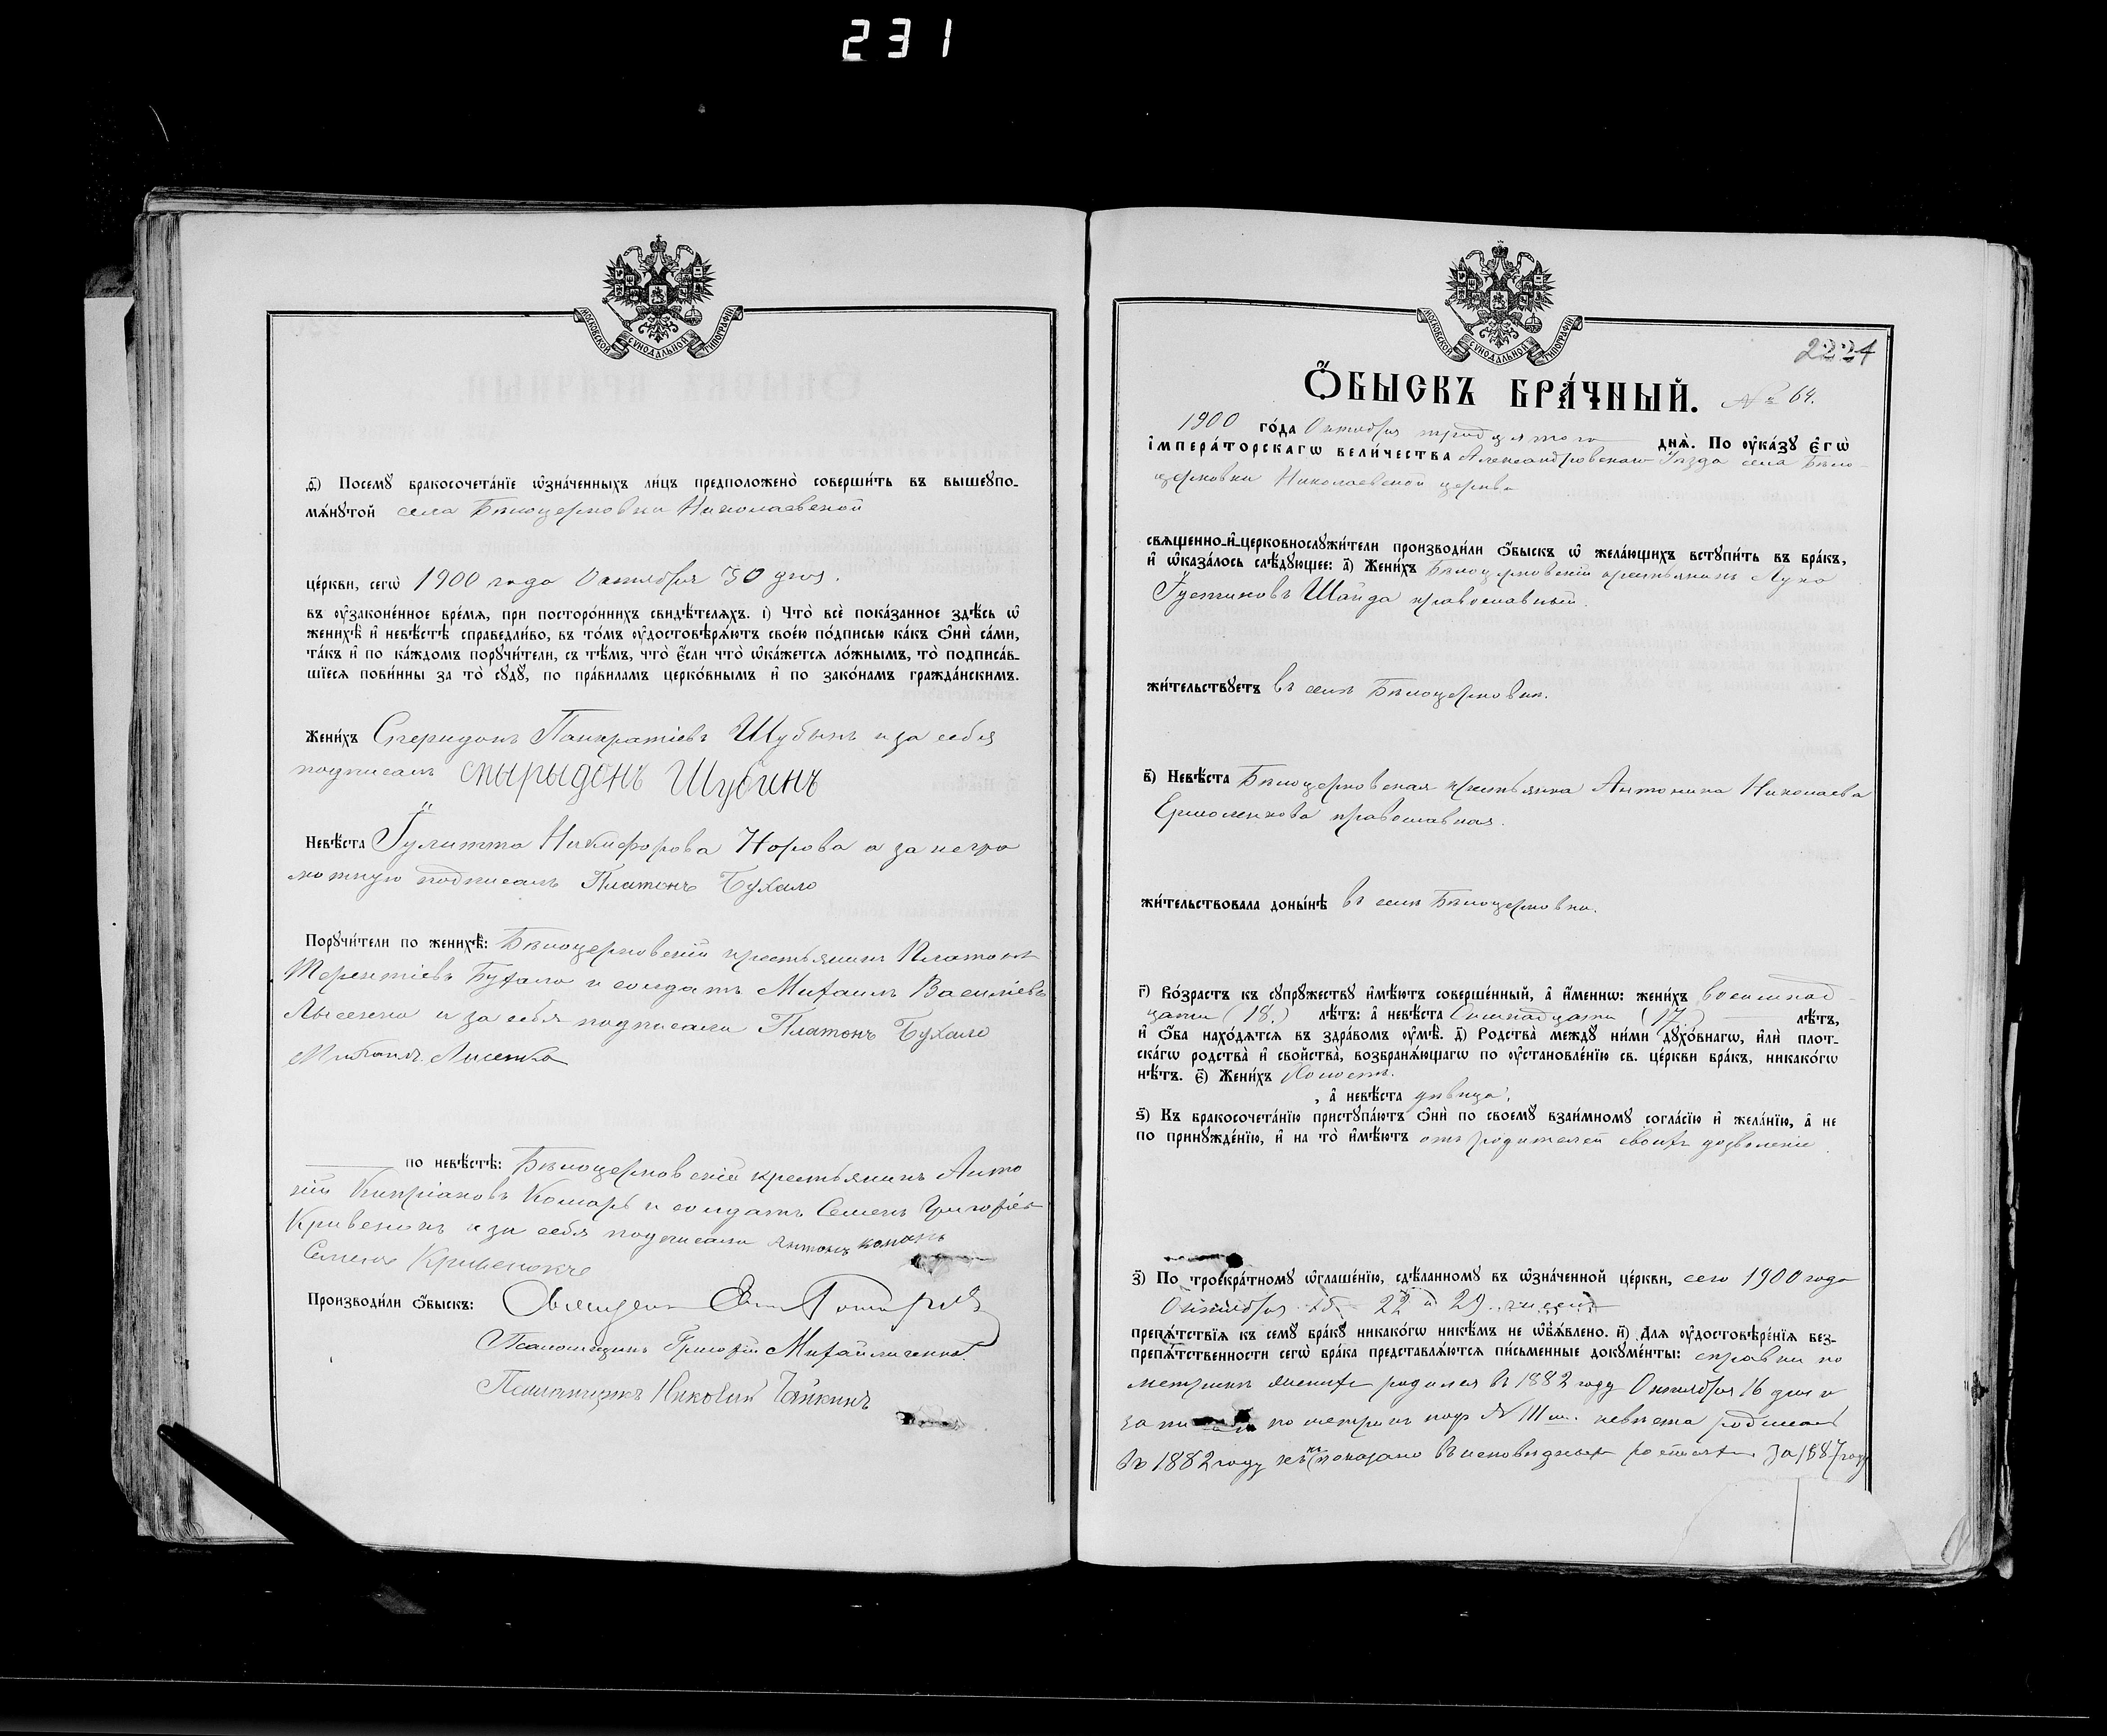 231
МОСКОВСКОЙ СѴНОДАЛЬНОЙ ТИПОГРАФІИ
ѳ҃) Посемꙋ̀ бракосочета́нїе ѡ҆зна́ченныхъ ли́цъ предположено̀ соверши́ть въ вышеꙋпо-
мѧ́нꙋтой села Бѣлоцерковки Николаевской
це́ркви, сегѡ̀ 1900 года Октября 30 дня.
въ ᲂу҆законе́нное вре́мѧ, при посторо́ннихъ свидѣ́телѧхъ. і҃) Что̀ всѐ пока́занное здѣ́сь ѡ҆
женихѣ̀ и҆ невѣ́стѣ справедли́во, въ то́мъ ᲂу҆достовѣрѧ́ютъ свое́ю по́дписью ка́къ ѻ҆нѝ са́ми,
та́къ и҆ по ка́ждомъ порꙋчи́тели, съ тѣ́мъ, что̀ є҆́сли что̀ ѡ҆ка́жетсѧ ло́жнымъ, то̀ подписа́в-
шїесѧ пови́нны за то̀ сꙋдꙋ̀, по пра́виламъ церко́внымъ и҆ по зако́намъ гражда́нскимъ.
Жени́хъ Спиридонъ Панкратіевъ Шубинъ и за себя
подписалъ Спырыдонъ Шубинъ
Невѣ́ста Іулитта Никифорова Норова а за негра
мотную подписалъ Платонъ Бухало
Порꙋчи́тели по женихѣ̀: Бѣлоцерковскій крестьянинъ Платонъ
Терентіевъ Бухало и солдатъ Михаилъ Василіевъ
Лысенко и за себя подписали Платонъ Бухало
Михаилъ Лисенко
по невѣ́стѣ: Бѣлоцерковскій крестьянинъ Анто
ній Кипріановъ Комарь и солдатъ Семенъ Григорьевъ
Кривенокъ и за себя подписали Антонъ Комарь
Семенъ Кривенокъ
Производи́ли ѻ҆́быскъ: Священникъ
Псаломщикъ Григорій Михайличенко.
Псаломщикъ Николай Чайкинъ
МОСКОВСКОЙ СѴНОДАЛЬНОЙ ТИПОГРАФІИ
224
Ѻ҆́БЫСКЪ БРА́ЧНЫЙ. № 64.
1900 го́да Октября тридцятого днѧ̀. По ᲂу҆ка́зꙋ є҆гѡ̀
і҆мпера́торскагѡ вели́чества Александровскаго Уѣзда села Бѣло-
церковки Николаевской церкви
свѧще́нно-и҆-церковнослꙋжи́тели производи́ли ѻ҆́быскъ ѡ҆ жела́ющихъ встꙋпи́ть въ бра́къ,
и҆ ѡ҆каза́лось слѣ́дꙋющее: а҃) Жени́хъ Бѣлоцерковскій крестьянинъ Лука
Іустиновъ Шайда православный.
жи́тельствꙋетъ въ селѣ Бѣлоцерковкѣ.
в҃) Невѣ́ста Бѣлоцерковская крестьянка Антонина Николаева
Ермоленкова православная.
жи́тельствовала доны́нѣ въ селѣ Бѣлоцерковки.
г҃) Во́зрастъ къ сꙋпрꙋ́жествꙋ и҆мѣ́ютъ соверше́нный, а҆ и҆́меннѡ: жени́хъ восемнад-
цати (18.) лѣ́тъ: а҆ невѣ́ста Семнадцати (17) лѣ́тъ,
и҆ ѻ҆́ба нахо́дѧтсѧ въ здра́вомъ ᲂу҆мѣ̀. д҃) Родства̀ междꙋ̀ ни́ми дꙋхо́внагѡ, и҆лѝ плот-
ска́гѡ родства̀ и҆ свойства̀, возбранѧ́ющагѡ по ᲂу҆становле́нїю св. це́ркви бра́къ, никако́гѡ
нѣ́тъ. є҃) Жени́хъ Холостъ.
, а҆ невѣ́ста дѣвица.
ѕ҃) Къ бракосочета́нїю пристꙋпа́ютъ ѻ҆нѝ по своемꙋ̀ взаи́мномꙋ согла́сїю и҆ жела́нїю, а҆ не
по принꙋжде́нїю, и҆ на то̀ и҆мѣ́ютъ отъ родителей своихъ дозволеніе.
з҃) По троекра́тномꙋ ѡ҆глаше́нїю, сдѣ́ланномꙋ въ ѡ҆зна́ченной це́ркви, сего 1900 года
Октября 15 22 и 29 числъ
препѧ́тствїѧ къ семꙋ̀ бра́кꙋ никако́гѡ никѣ́мъ не ѡ҆б̾ѧ́влено. и҃) Длѧ̀ ᲂу҆достовѣре́нїѧ без-
препѧ́тственности сегѡ̀ бра́ка представлѧ́ютсѧ пи́сьменные докꙋме́нты: справки по
метрикѣ женихъ родился въ 1882 году Октября 16 дня и
по метрикѣ подъ № 111 м. невѣста родилась
въ 1882 году какъ показано въ исповѣдныхъ росписяхъ за 1887 годъ